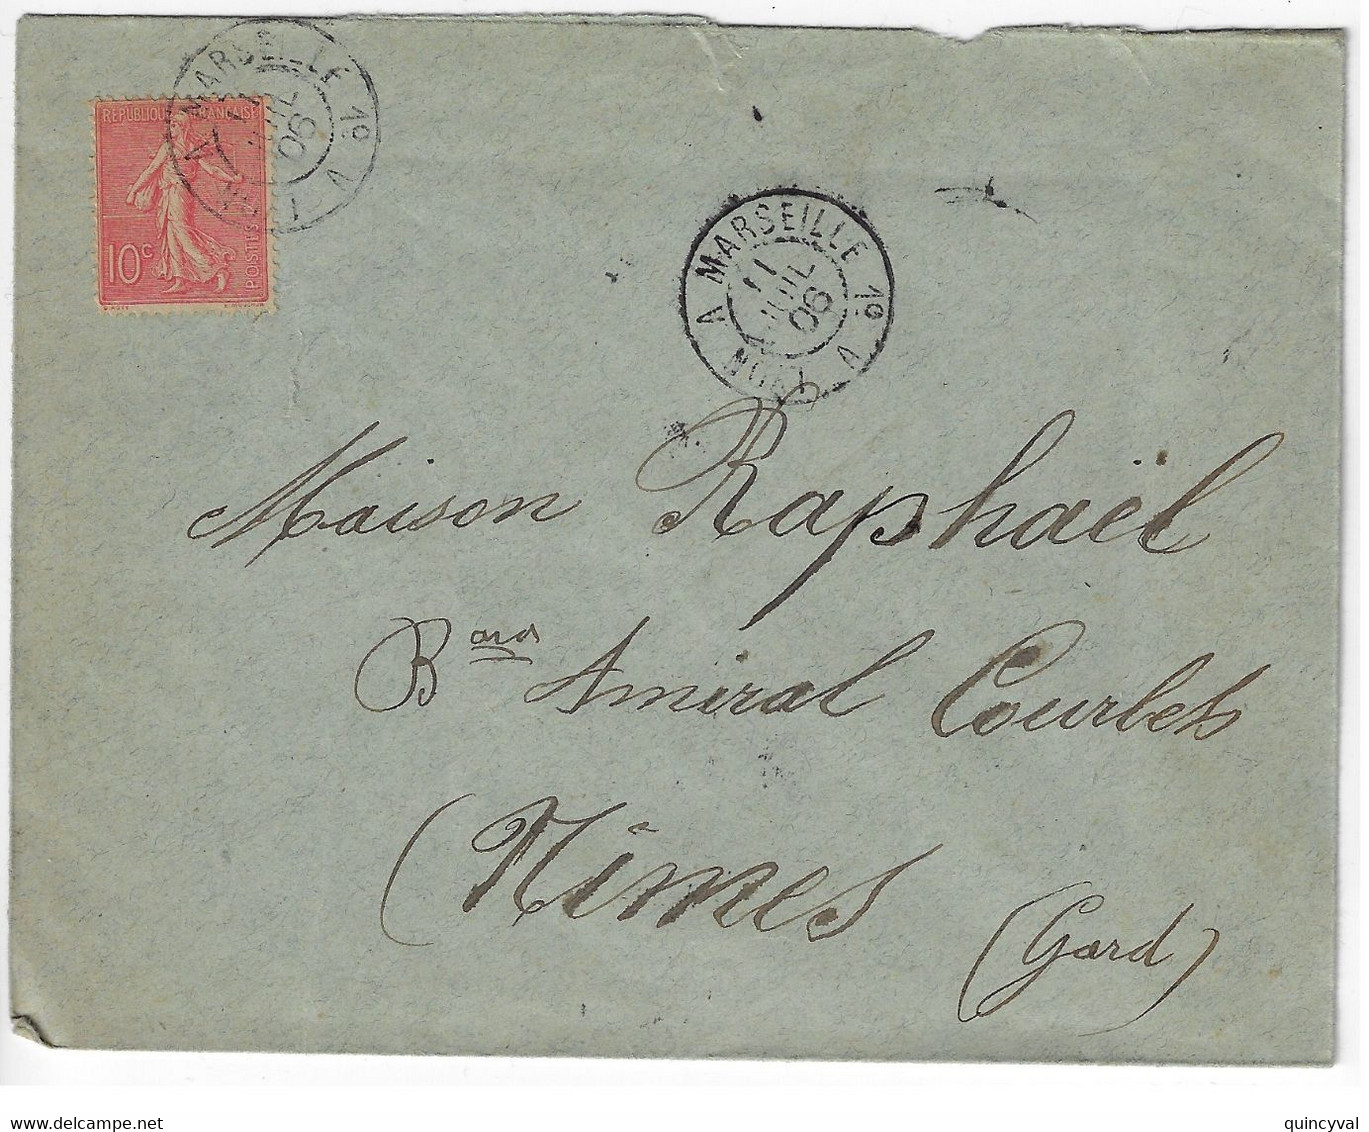 RÉPUBLIQUE FRANÇAISE
10c
POSTES
MARSEILLE 1º V
06
LYON A MARSEILLE 1º V
11
JUIL
06
Maison Raphaël
Bard Amiral Courbet
(Nîmes
(Gard)
quincyval